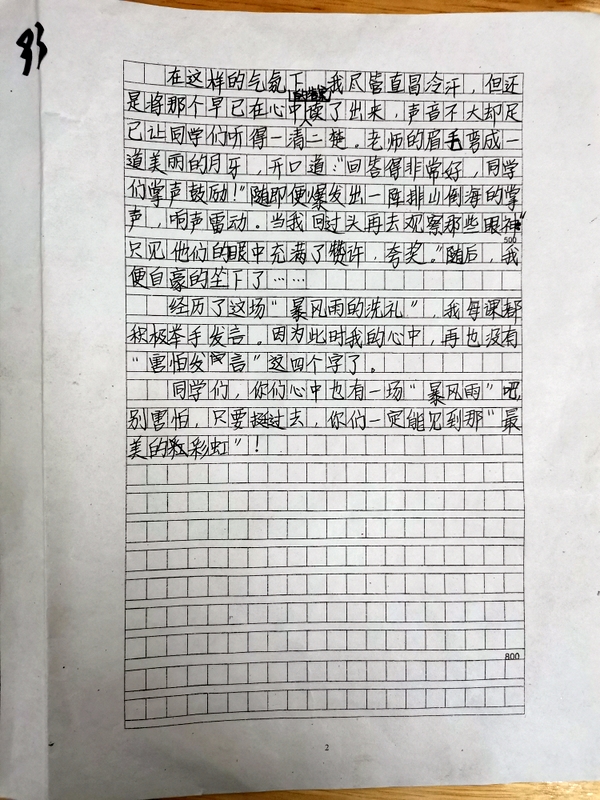 93
在这样的气氛下，我尽管直冒冷汗，但还
是将那个早已在心中的答案读了出来，声音不大却足
已让同学们听得一清二楚。老师的眉毛弯成一
道美丽的月牙，开口道："回答得非常好，同学
们掌声鼓励！"随即便爆发出一阵排山倒海的掌
声，响声雷动。当我回过头再去观察那些眼神"
500
只见他们的眼中充满了赞许，夸奖。"随后，我
便自豪的坐下了……
经历了这场"暴风雨的洗礼"，我每课都
积极举手发言。因为此时我的心中，再也没有
"害怕发言"这四个字了。
同学们，你们心中也有一场"暴风雨"吧，
别害怕，只要挺过去，你们一定能见到那"最
美的彩虹"！
800
2